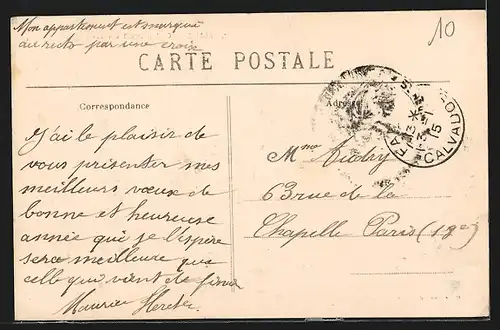 Mon appartement est marqué
au recto par une croix
10
CARTE POSTALE
Correspondance
Adresse
J'ai le plaisir de
vous présenter mes
meilleurs vœux de
bonne et heureuse
année que je l'espère
sera meilleure que
celle qui vient de finir
Maurice
Mme Audry
63 rue de la
Chapelle Paris (18e)
CALVADOS